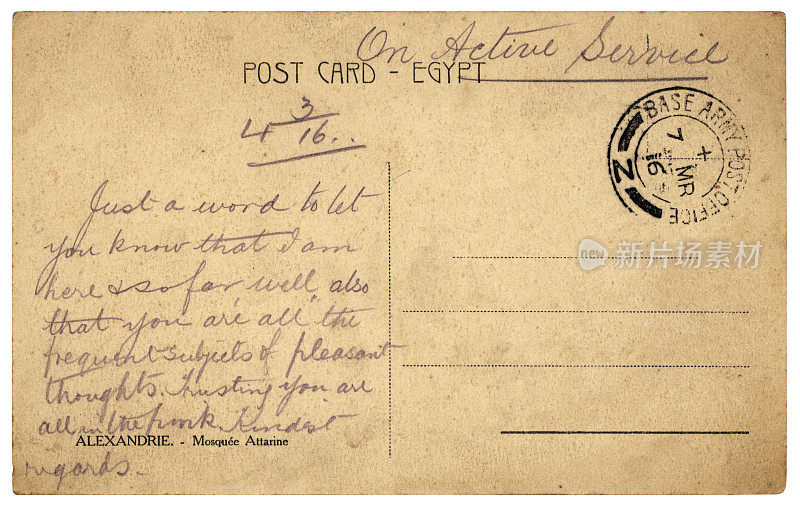 On Active Service
POST CARD - EGYPT
3
4 16..
BASE ARMY POST OFFICE
Z
+
7 MR
16
Just a word to let
you know that I am
here & so far well, also
that you are all the
frequent subjects of pleasant
thoughts. Trusting you are
all in the pink. Kindest
regards.
ALEXANDRIE. - Mosquée Attarine
new 新片场素材